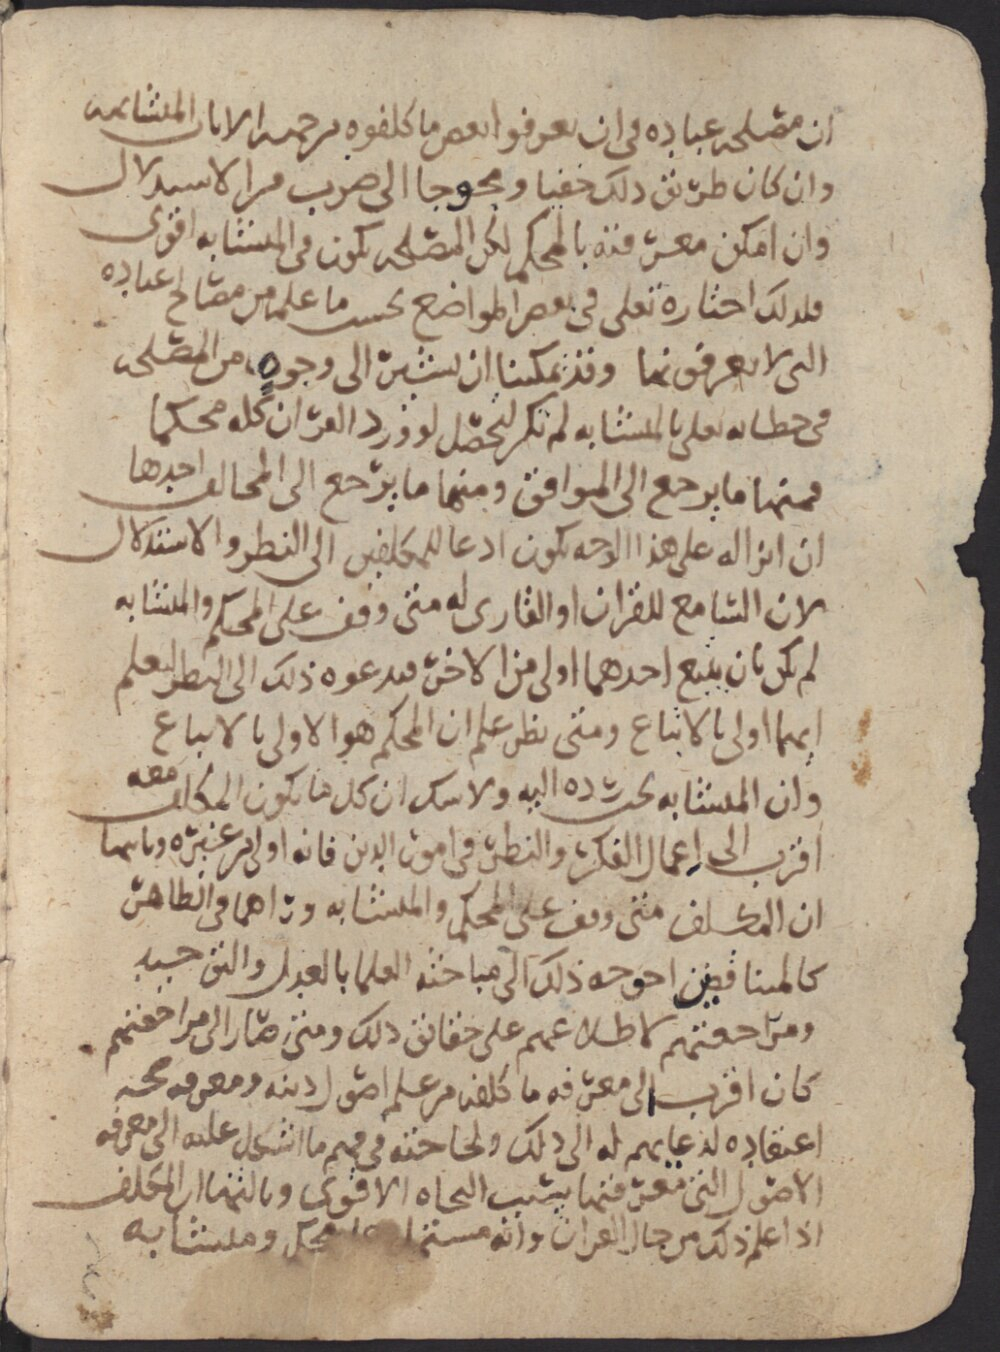 ان مصلحه عباده فى ان يعرفوا بعض ما كلفوه من جهه الايات المتشابهه
وان كان طريق ذلك خفيا ومحوجا الى ضرب من الاستدلال
وان امكن معرفته بالمحكم لكن المصلحه تكون فى المتشابه اقوى
فلذلك اختاره تعلى فى بعض المواضع بحسب ما علمه من مصالح عباده
التى لا يعرفونها وقد يمكننا ان نشير الى وجوه من المصلحه
فى خطابه تعلى بالمتشابه لم تكن لتحصل لو ورد القران كله محكما
فمنها ما يرجع الى الموافق ومنها ما يرجع الى المخالف احدها
ان انزاله على هذا الوجه يكون ادعا للمكلفين الى النظر والاستدلال
لان السامع للقران او القارى له متى وقف على المحكم والمتشابه
لم يكن بان يتبع احدهما اولى من الاخر فيدعوه ذلك الى النظر ليعلم
ايهما اولى بالاتباع ومتى نظر علم ان المحكم هو الاولى بالاتباع
وان المتشابه يجب رده اليه ولا شك ان كل ما يكون المكلف معه
اقرب الى اعمال الفكر والنظر فى امور الدين فانه اولى من غيره وثانيها
ان المكلف متى وقف على المحكم والمتشابه وراهما فى الظاهر
كالمتناقضين احوجه ذلك الى مباحثه العلما بالعدل والتوحيد
ومراجعتهم لاطلاعهم على حقائق ذلك ومتى صار الى مراجعتهم
كان اقرب الى معرفه ما كلفه من علم اصول دينه ومعرفه صحه
اعتقاده لدعايهم له الى ذلك ولحاجته فى فهم ما اشكل عليه الى معرفه
الاصول التى معرفتها بسبب النجاه الاقوى وثالثها ان المكلف
اذا علم ذلك من حال القران وانه مشتمل على محكم ومتشابه